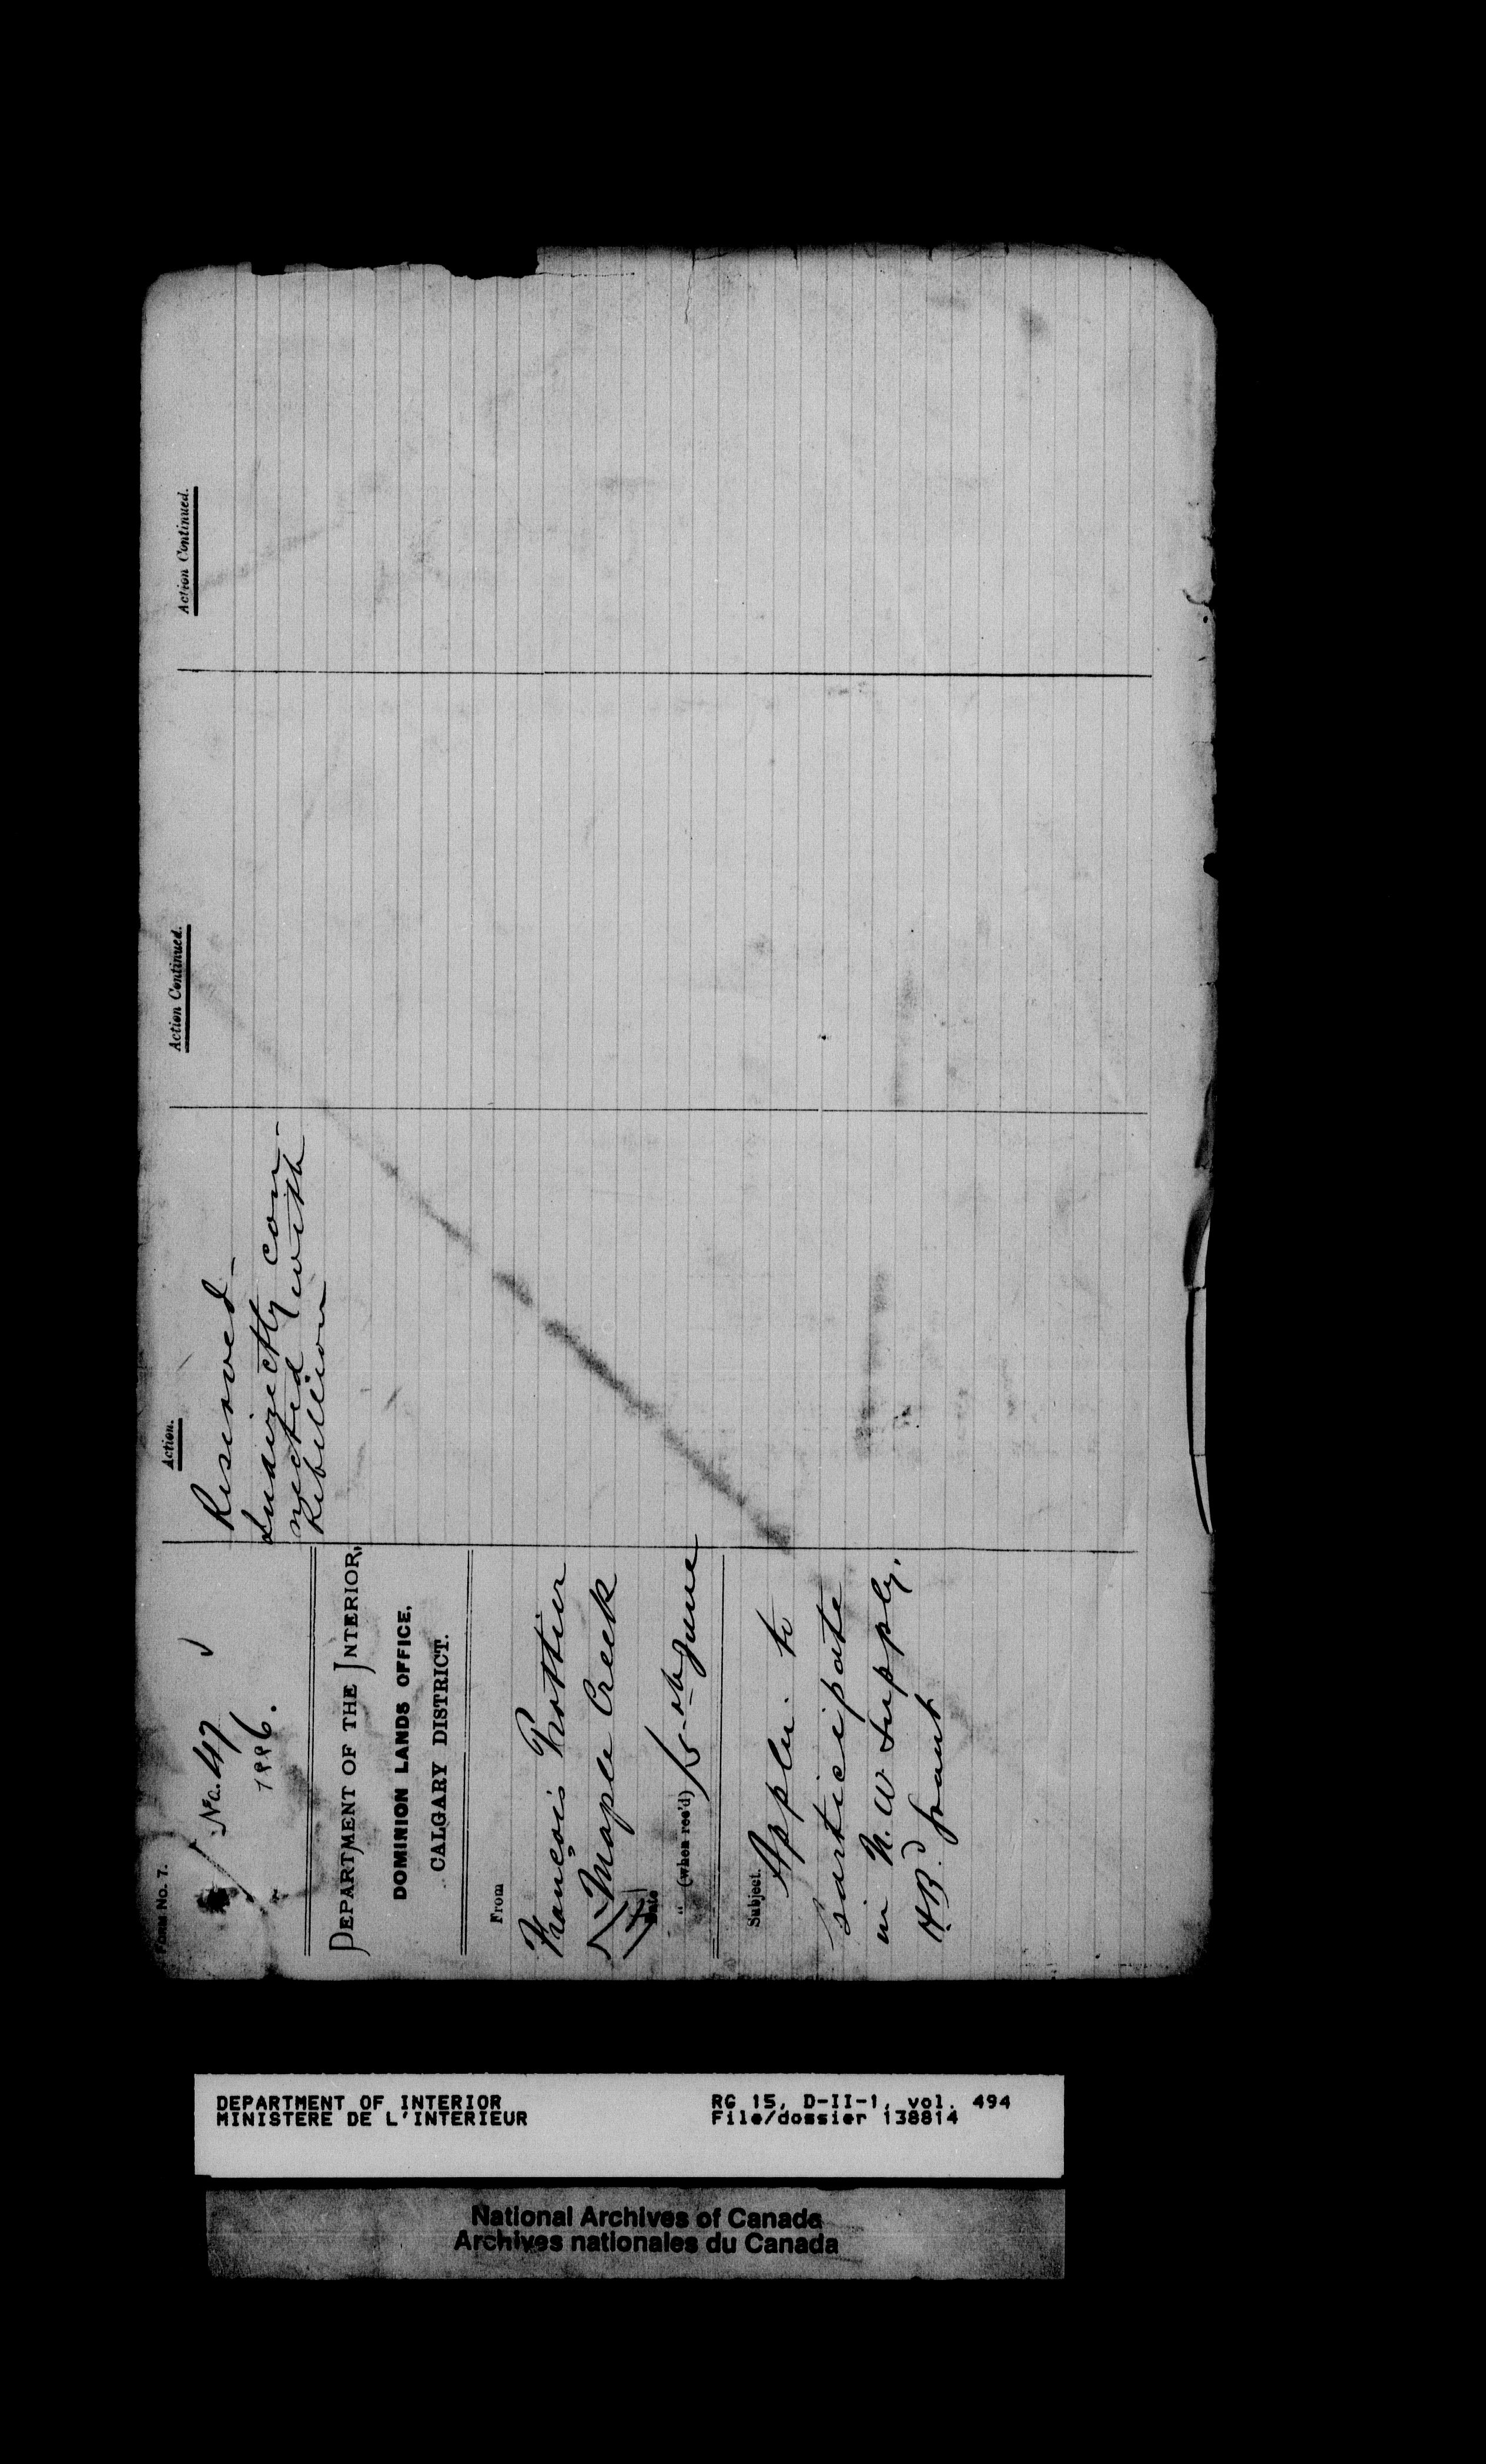 FORM No. 7.
No. 47
1886.
DEPARTMENT OF THE INTERIOR,
DOMINION LANDS OFFICE,
CALGARY DISTRICT.
From
François Trottier
Maple Creek
Date
" (when rec'd) 15th June
Subject.
Applu. to
participate
in N. W Supply.
H B. grant
Action.
Reserved –
Indirectly con-
nected with
Rebellion
Action Continued.
Action Continued.
DEPARTMENT OF INTERIOR
MINISTERE DE L'INTERIEUR
RG 15, D-II-1, vol. 494
File/dossier 138814
National Archives of Canada
Archives nationales du Canada